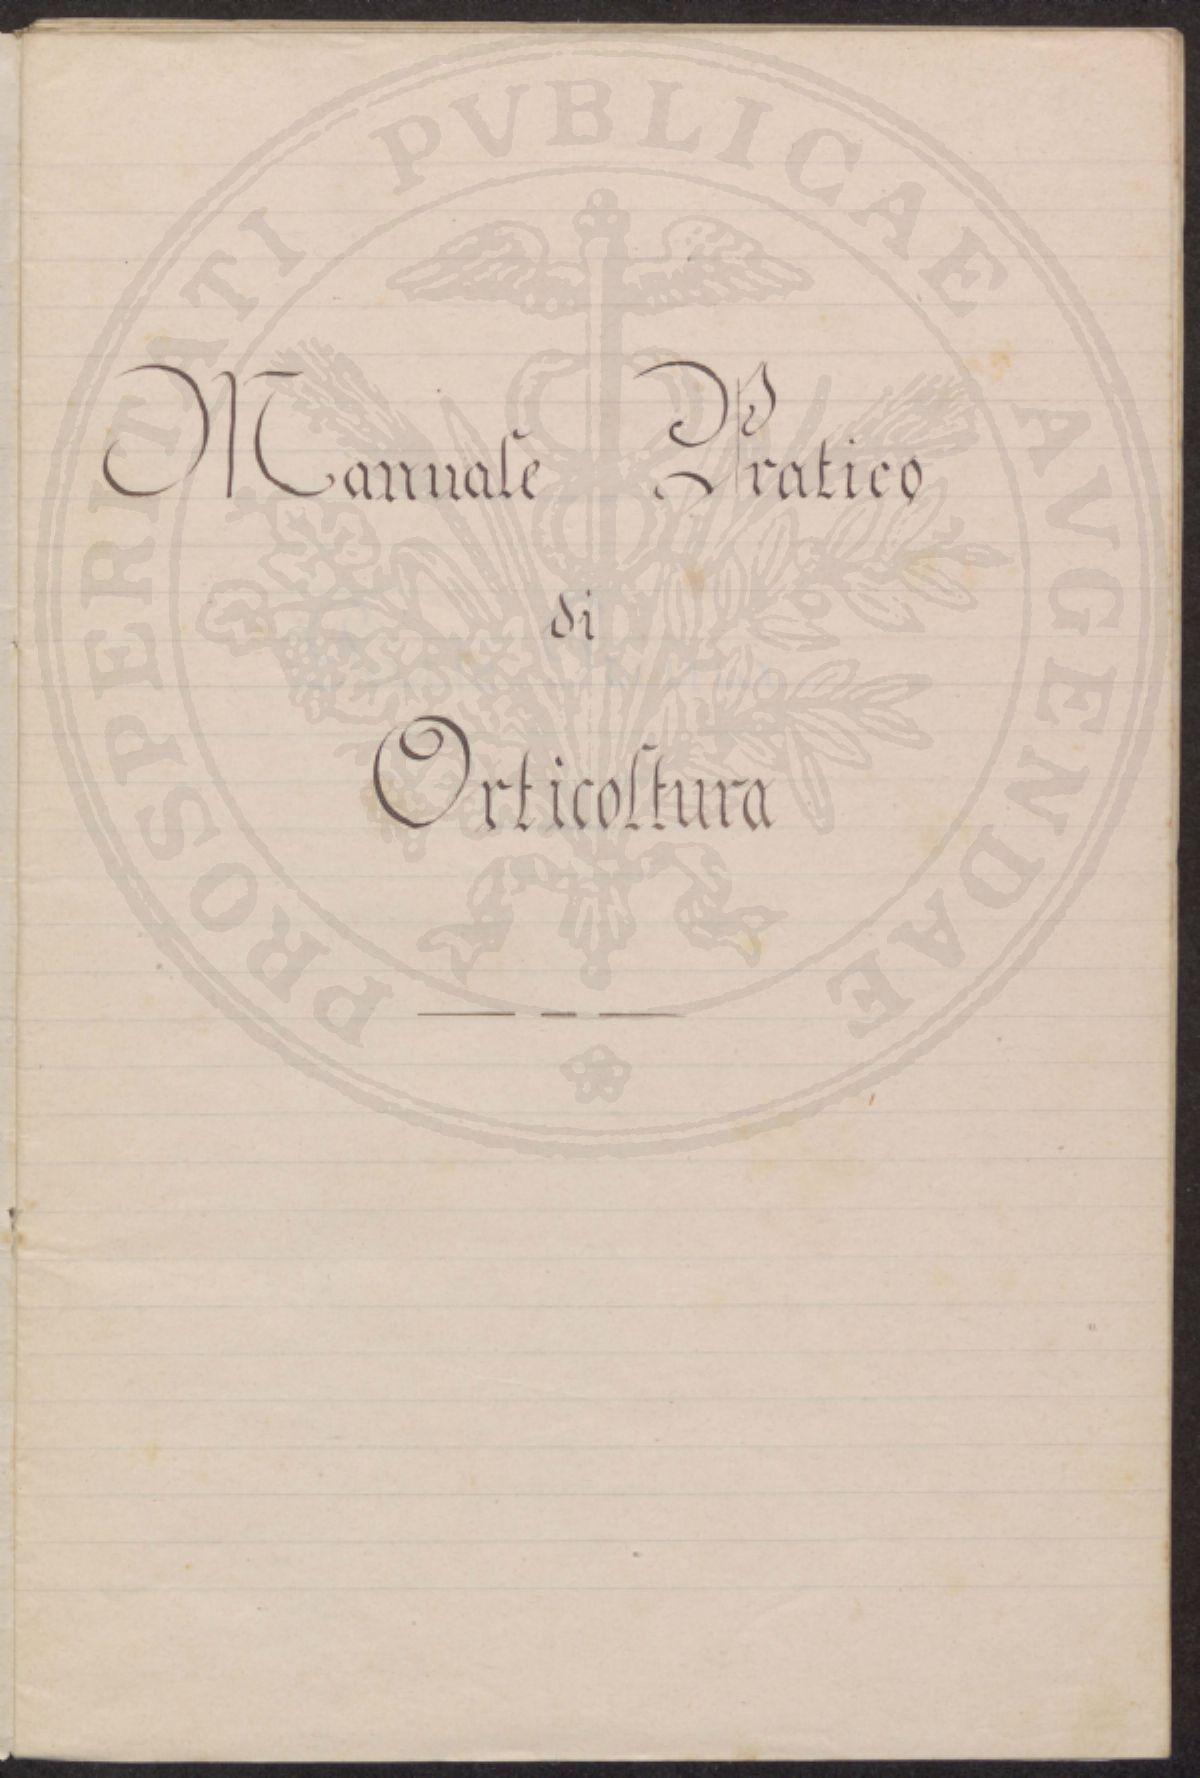 Manuale Pratico
di
Orticoltura
PROSPERITATI PVBLICAE AVGENDAE